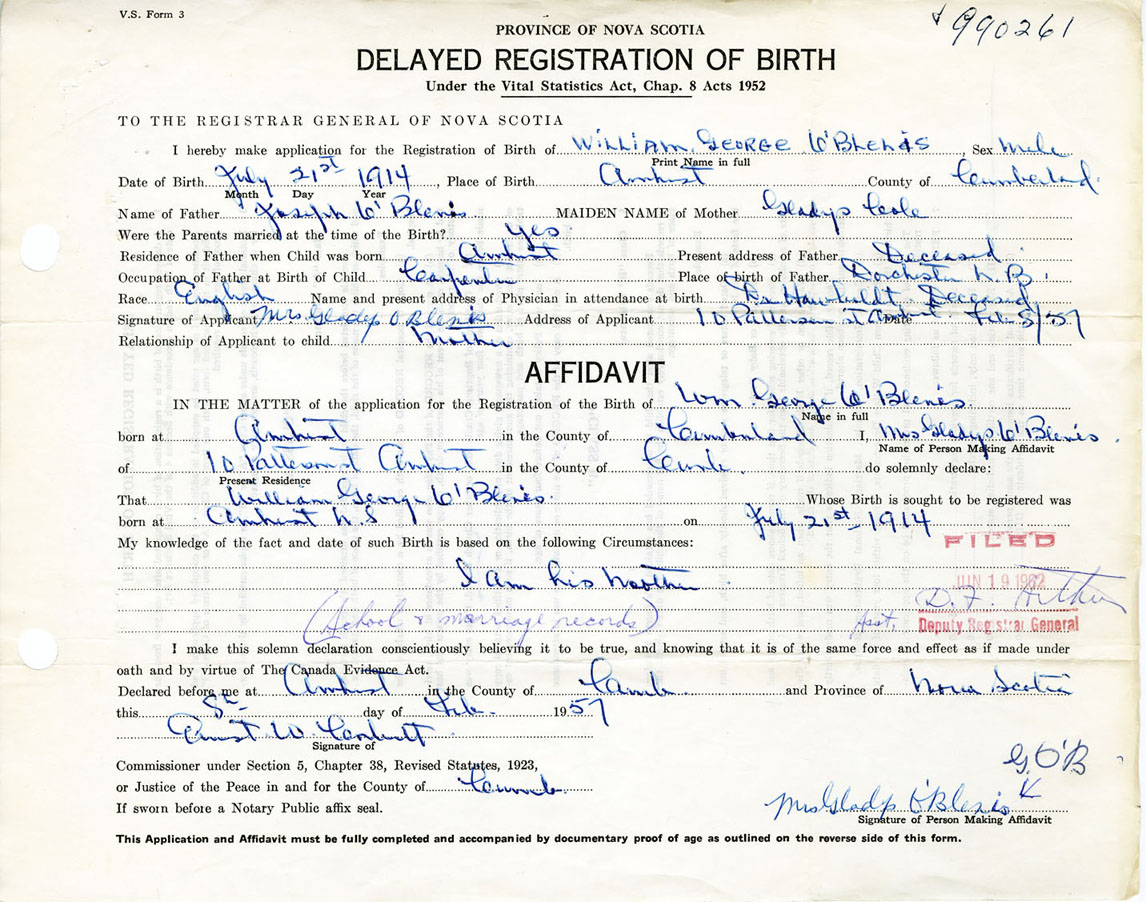 V.S. Form 3
990261
PROVINCE OF NOVA SCOTIA
DELAYED REGISTRATION OF BIRTH
Under the Vital Statistics Act, Chap. 8 Acts 1952
TO THE REGISTRAR GENERAL OF NOVA SCOTIA
I hereby make application for the Registration of Birth of William George O'Blenis, Sex Male
Print Name in full
Date of Birth July 21st 1914, Place of Birth Amherst County of Cumberland
Month Day Year
Name of Father Joseph O'Blenis MAIDEN NAME of Mother Gladys Cole
Were the Parents married at the time of the Birth? Yes
Residence of Father when Child was born Amherst Present address of Father Deceased
Occupation of Father at Birth of Child Carpenter Place of birth of Father Dorchester N.B.
Race English Name and present address of Physician in attendance at birth Dr Deceased
Signature of Applicant Mrs Gladys O'Blenis Address of Applicant 10 Patterson st Amherst Date Feb 8/57
Relationship of Applicant to child Mother
AFFIDAVIT
IN THE MATTER of the application for the Registration of the Birth of Wm George O'Blenis
Name in full
born at Amherst in the County of Cumberland I, Mrs Gladys O'Blenis
Name of Person Making Affidavit
of 10 Patterson st Amherst in the County of Cumb. do solemnly declare:
Present Residence
That William George O'Blenis Whose Birth is sought to be registered was
born at Amherst N.S on July 21st 1914
My knowledge of the fact and date of such Birth is based on the following Circumstances:
FILED
I am his Mother
JUN 19 1962
D.F.
(School & marriage records) Asst. Deputy Registrar General
I make this solemn declaration conscientiously believing it to be true, and knowing that it is of the same force and effect as if made under
oath and by virtue of The Canada Evidence Act.
Declared before me at Amherst in the County of Cumb. and Province of Nova Scotia
this 8th day of Feb. 1957
Ernst W
Signature of
Commissioner under Section 5, Chapter 38, Revised Statutes, 1923,
G. O'B
or Justice of the Peace in and for the County of Cumb.
Mrs Gladys O'Blenis
If sworn before a Notary Public affix seal.
Signature of Person Making Affidavit
This Application and Affidavit must be fully completed and accompanied by documentary proof of age as outlined on the reverse side of this form.